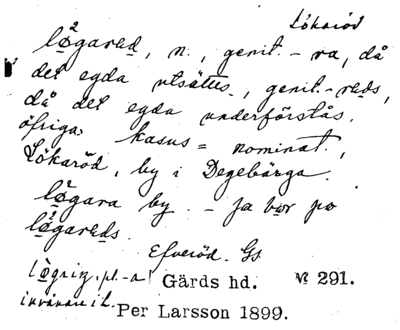 Lökaröd
lögared, n., genit. -ra, då
det egda utsättes, genit. -reds,
då det egda underförstås.
öfriga kasus = nominat.,
Lökaröd, by i Degebärga.
lögara by. - ja bor po
lögareds.
Efveröd. Gs
lögriz, pl. -a Gärds hd. VI 291.
invånare Per Larsson 1899.